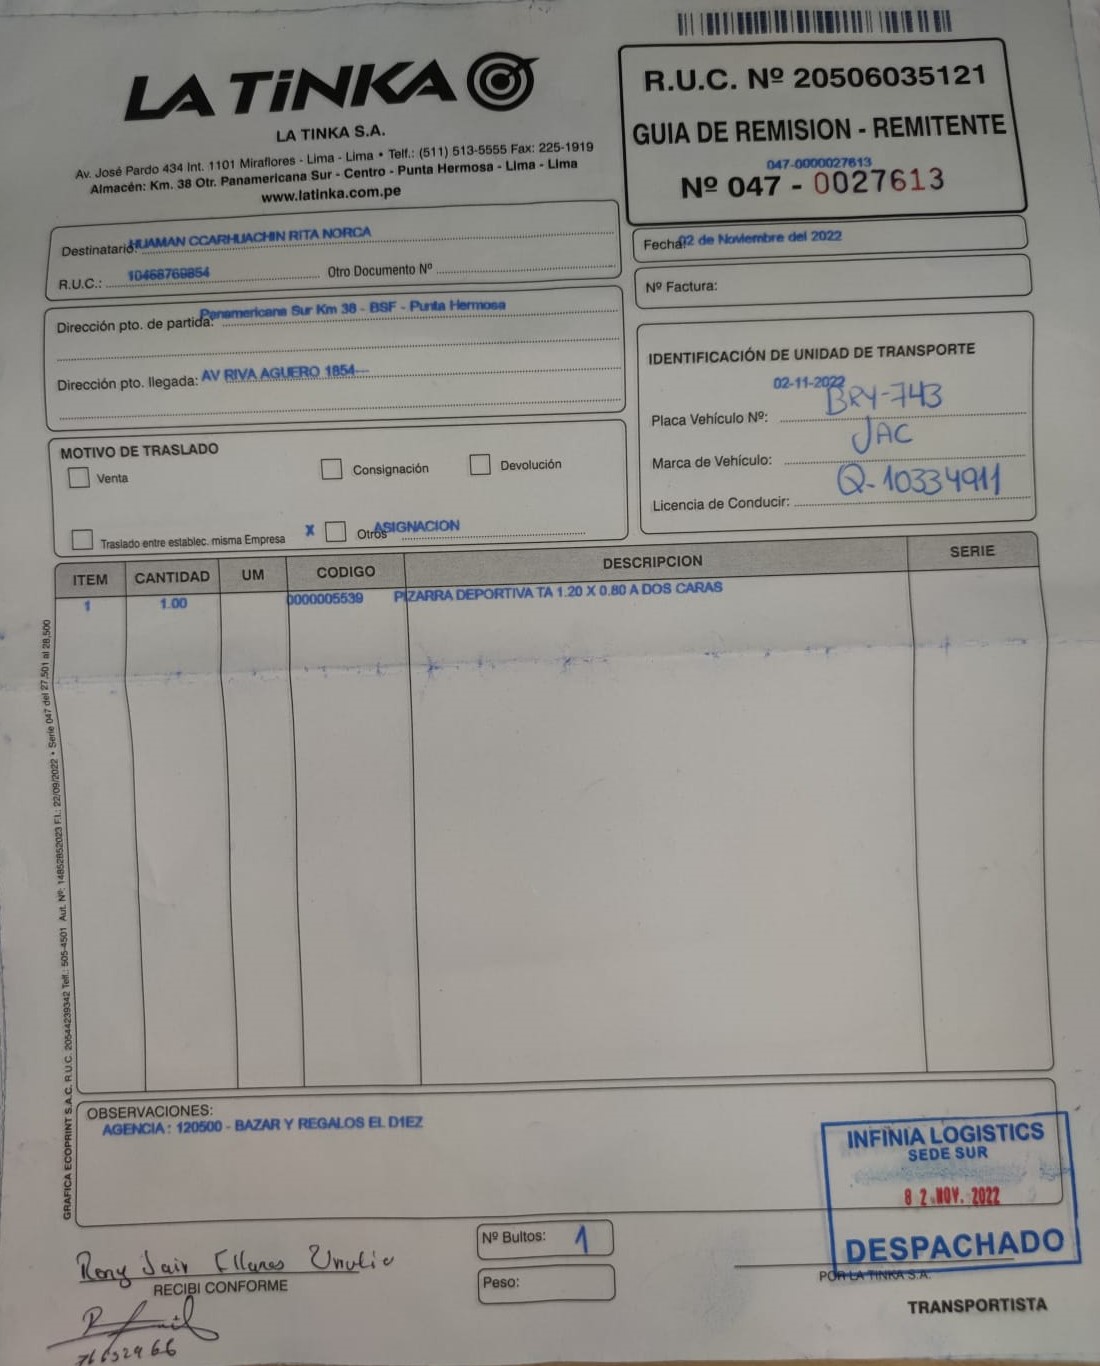 LA TiNKA
LA TINKA S.A.
Av. José Pardo 434 Int. 1101 Miraflores - Lima - Lima • Telf.: (511) 513-5555 Fax: 225-1919
Almacén: Km. 38 Otr. Panamericana Sur - Centro - Punta Hermosa - Lima - Lima
www.latinka.com.pe
R.U.C. Nº 20506035121
GUIA DE REMISION - REMITENTE
047-0000027613
Nº 047 - 0027613
Destinatario: HUAMAN CCARHUACHIN RITA NORCA
R.U.C.: 10468769854 Otro Documento Nº
Fecha: 02 de Noviembre del 2022
Nº Factura:
Dirección pto. de partida: Panamericana Sur Km 38 - BSF - Punta Hermosa
Dirección pto. llegada: AV RIVA AGUERO 1854---
IDENTIFICACIÓN DE UNIDAD DE TRANSPORTE
02-11-2022
Placa Vehículo Nº: BRY-743
Marca de Vehículo: JAC
Licencia de Conducir: Q-10334911
MOTIVO DE TRASLADO
Venta Consignación Devolución
Traslado entre establec. misma Empresa X Otros ASIGNACION
ITEM CANTIDAD UM CODIGO DESCRIPCION SERIE
1 1.00 0000005539 PIZARRA DEPORTIVA TA 1.20 X 0.80 A DOS CARAS
GRAFICA ECOPRINT S.A.C. R.U.C. 20544239342 Telf.: 505-4501 Aut. Nº: 14852852023 F.I.: 22/09/2022 • Serie 047 del 27,501 al 28,500
OBSERVACIONES:
AGENCIA : 120500 - BAZAR Y REGALOS EL D1EZ
INFINIA LOGISTICS
SEDE SUR
02 NOV. 2022
DESPACHADO
Nº Bultos: 1
Peso:
Rony Jair
RECIBI CONFORME
POR LA TINKA S.A.
TRANSPORTISTA